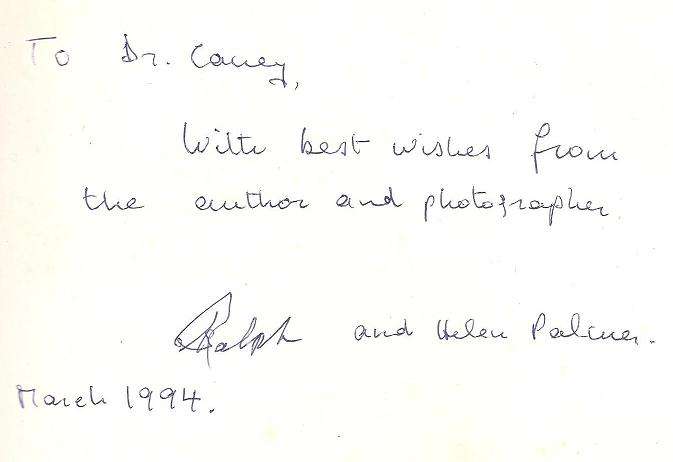 To Dr. Caney,
With best wishes from
the author and photographer
Ralph and Helen Palmer.
March 1994.